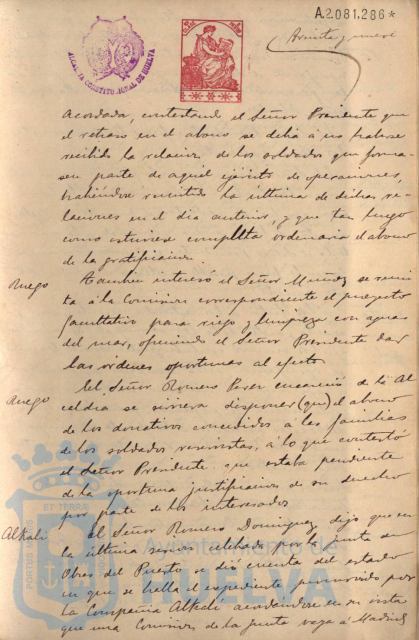 A2.081.286*
ALCALDIA CONSTITUCIONAL DE HUELVA
Acordada, contestando el Señor Presidente que
el retraso en el abono se debia á no haberse
recibido la relacion de los soldados que forma-
sen parte de aquel ejército de operaciones,
habiéndose recibido la última de dichas re-
laciones en el dia anterior, y que tan luego
como estuviese completa ordenaria el abono
de la gratificacion.
Ruego
Tambien interesó el Señor Muñoz se remi-
ta á la Comision correspondiente el proyecto
facultativo para riego y limpieza con aguas
del mar, ofreciendo el Señor Presidente dar
las ordenes oportunas al efecto.
Ruego
El Señor Romero Perez encareció de la Al-
caldia se sirviera disponer (que) el abono
de los donativos concedidos á las familias
de los soldados reservistas, á lo que contestó
el Señor Presidente que estaba pendiente
de la oportuna justificacion de su derecho
por parte de los interesados
Alkali
El Señor Romero Dominguez dijo que en
la última sesion celebrada por la Junta de
Obras del Puerto se dió cuenta del estado
en que se halla el expediente promovido por
la Compañia Alkali acordándose en su vista
que una Comision de la Junta vaya á Madrid
PORTUS MARIS
ET TERRÆ
Ayuntamiento de
HUELVA